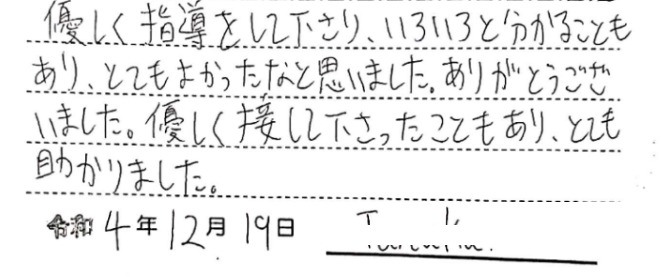 優しく指導をして下さり、いろいろと分かることも
あり、とてもよかったなと思いました。ありがとうござ
いました。優しく接して下さったこともあり、とても
助かりました。
令和4年12月19日